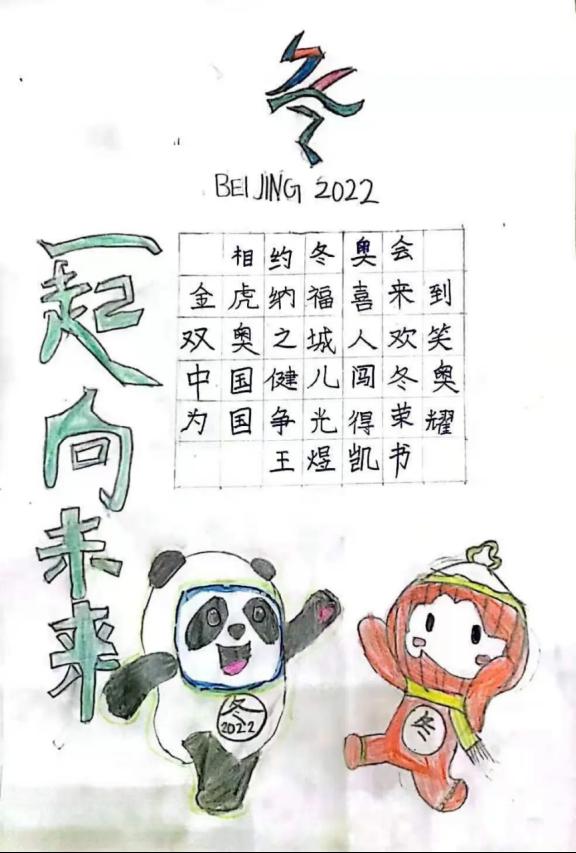 冬
BEIJING 2022
一起向未来
相约冬奥会
金虎纳福喜来到
双奥之城人欢笑
中国健儿闯冬奥
为国争光得荣耀
王煜凯书
冬
2022
冬